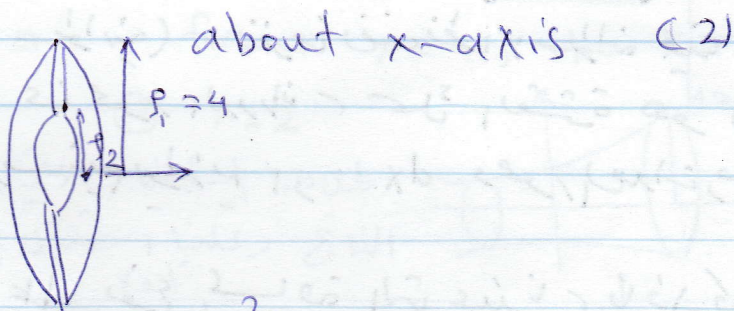 about x-axis (2)
ρ₁ = 4
ρ₂
2